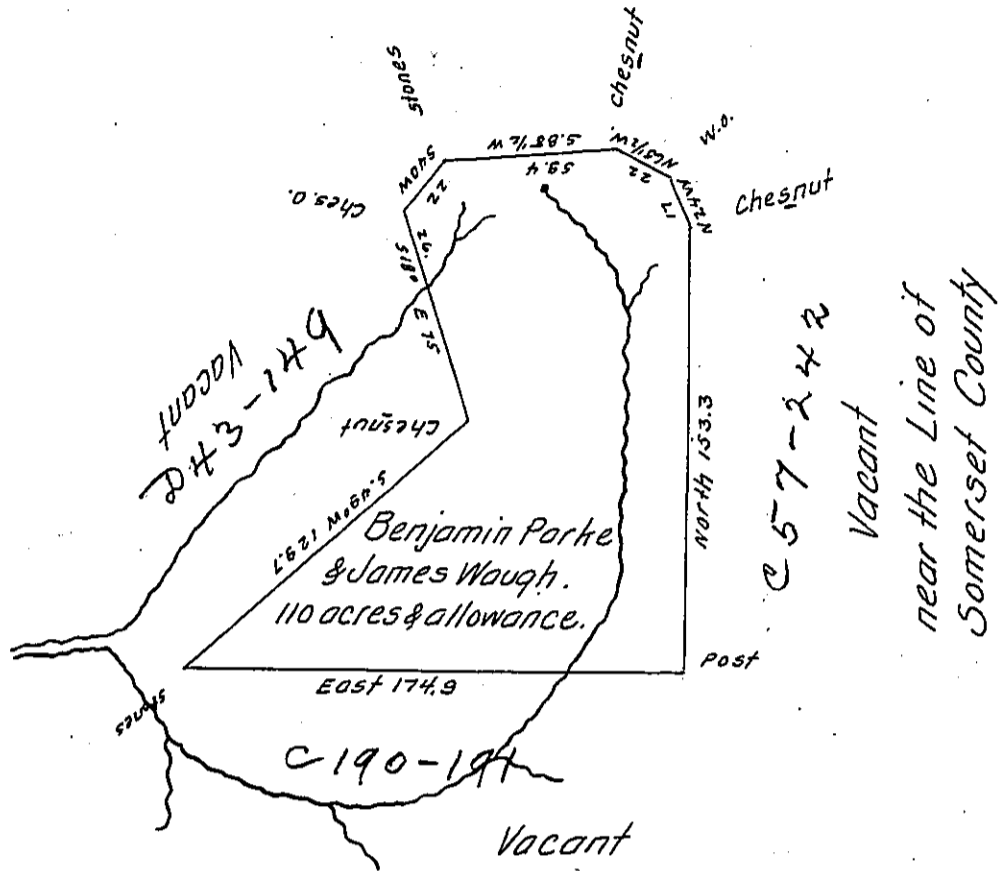 stones
chesnut
W.O.
Chesnut
Ches.O.
S40W
22
S.88½W
59.4
N65½W.
22
N24W
17
26.
S18°
E 75
Vacant
D43-149
Chesnut
S.49°W 129.7
Benjamin Parke
& James Waugh.
110 acres & allowance.
North 153.3
C57-242
Vacant
near the Line of
Somerset County
Post
East 174.9
stones
C190-191
Vacant